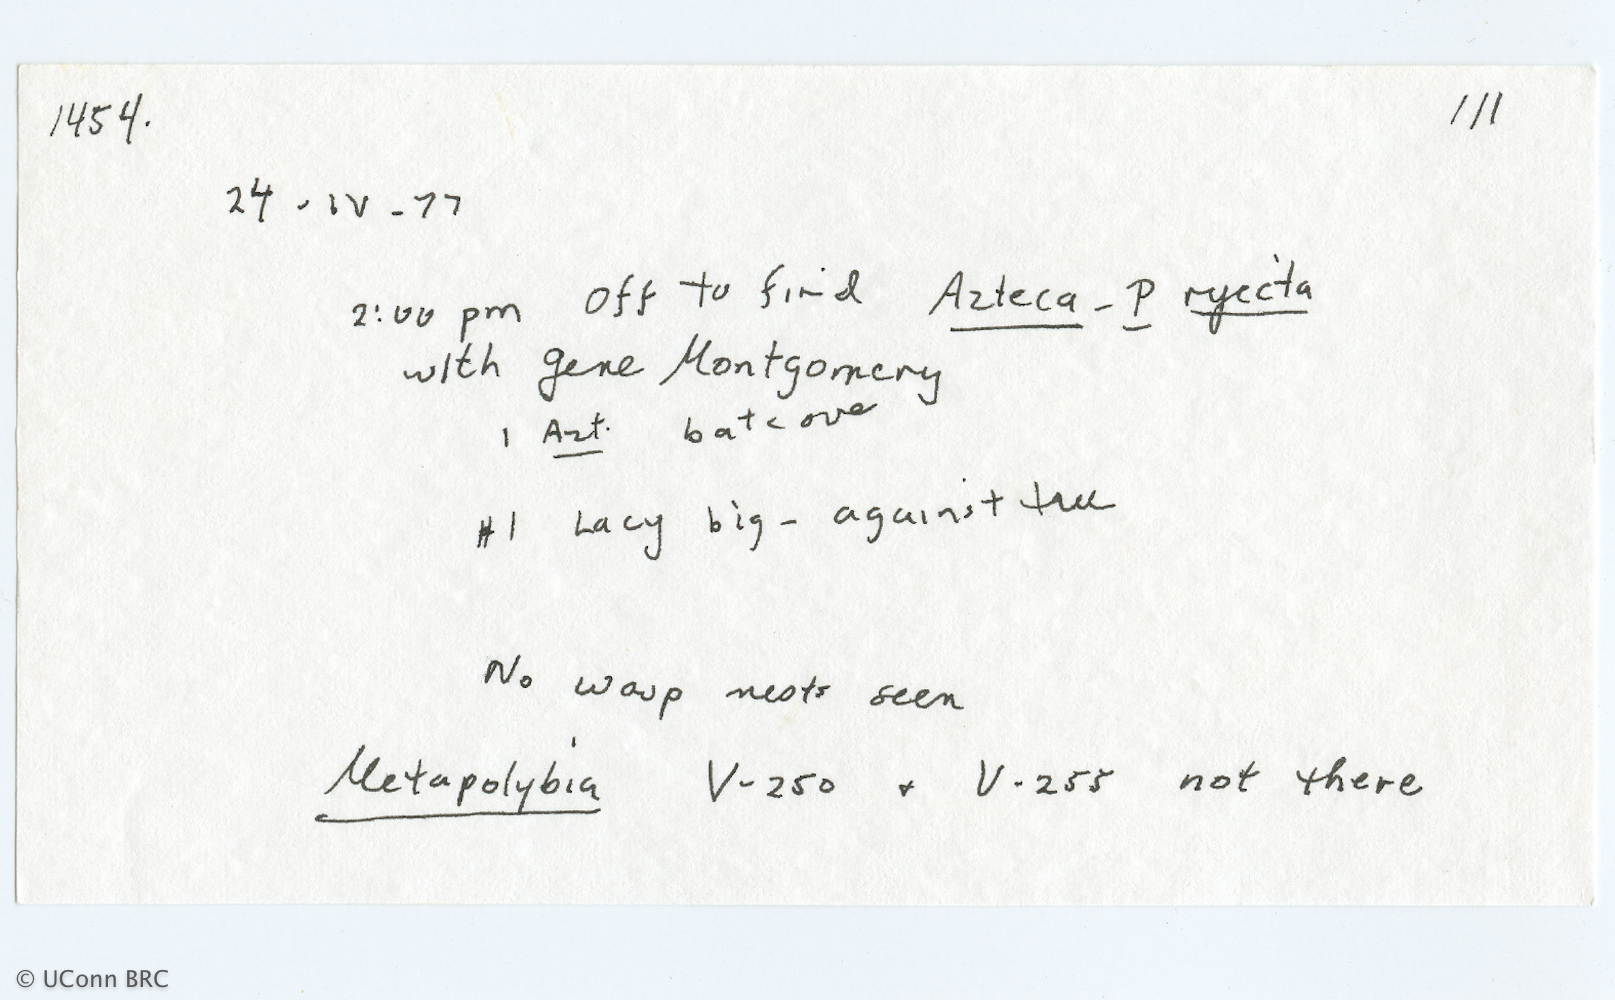 1454.
111
24 - IV - 77
2:00 pm Off to find Azteca - P rejecta
with Gene Montgomery
1 Azt. batcove
#1 Lacy big - against tree
No wasp nests seen
Metapolybia V-250 + V-255 not there
© UConn BRC